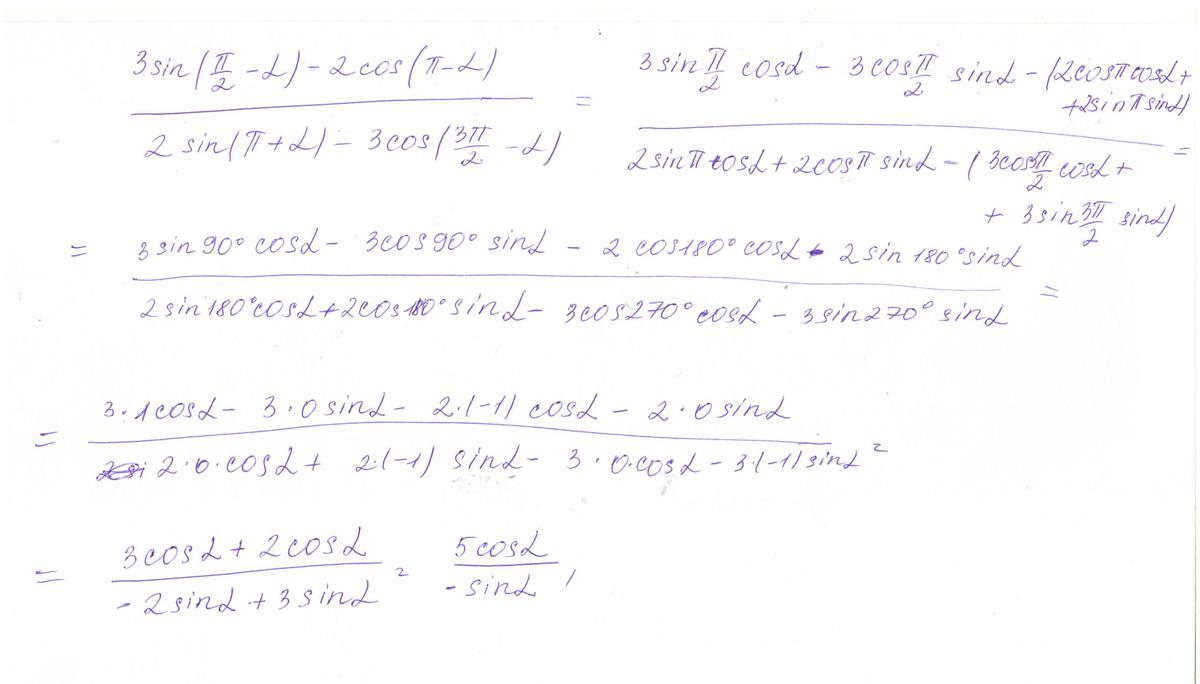 (3 sin(π/2 - α) - 2 cos(π - α)) / (2 sin(π + α) - 3 cos(3π/2 - α)) = (3 sin π/2 cos α - 3 cos π/2 sin α - (2 cos π cos α + + 2 sin π sin α)) / (2 sin π cos α + 2 cos π sin α - (3 cos 3π/2 cos α + + 3 sin 3π/2 sin α)) =
= (3 sin 90° cos α - 3 cos 90° sin α - 2 cos 180° cos α - 2 sin 180° sin α) / (2 sin 180° cos α + 2 cos 180° sin α - 3 cos 270° cos α - 3 sin 270° sin α) =
= (3·1 cos α - 3·0 sin α - 2·(-1) cos α - 2·0 sin α) / (2·0·cos α + 2·(-1) sin α - 3·0·cos α - 3·(-1) sin α) =
= (3 cos α + 2 cos α) / (-2 sin α + 3 sin α) = 5 cos α / - sin α ,